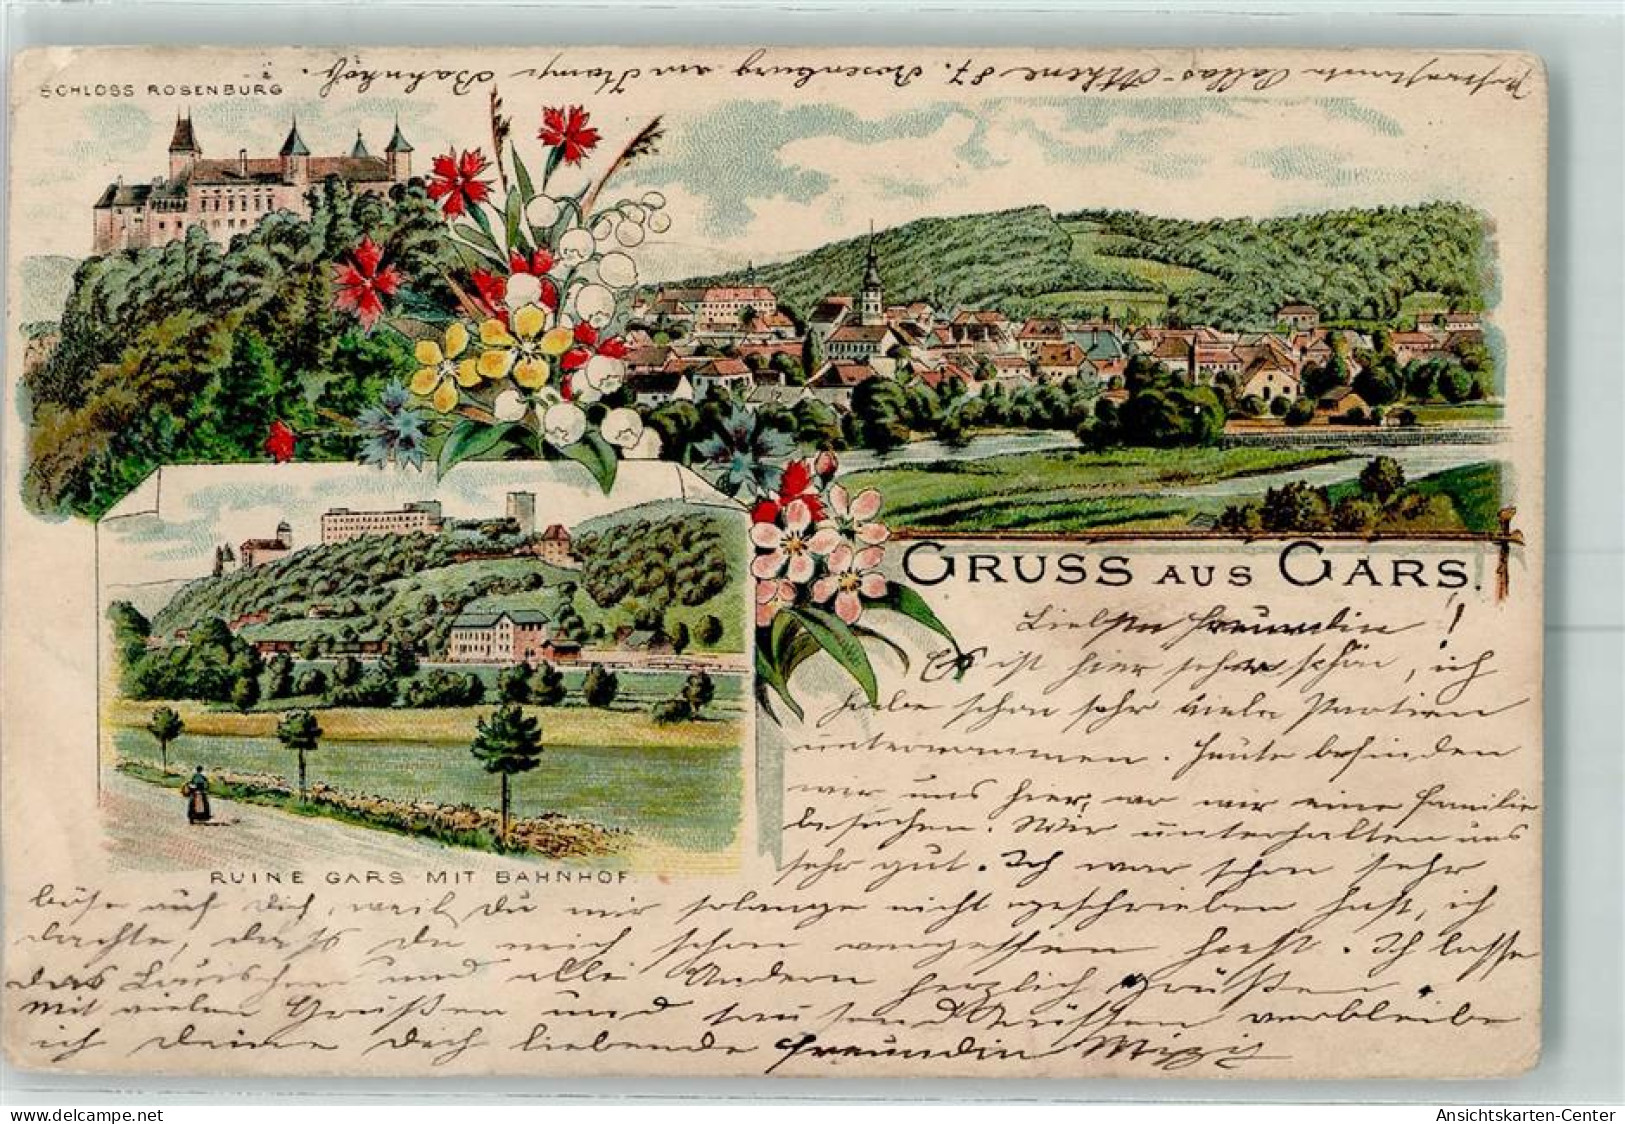 Pallas-Athene 87. Rosenburg am Kamp Bahnhof.
SCHLOSS ROSENBURG
GRUSS AUS GARS.
Liebste Freundin!
Es ist hier sehr schön, ich
habe schon sehr viele Partien
unternommen. Heute befinden
wir uns hier, wo wir eine Familie
besuchen. Wir unterhalten uns
sehr gut. Ich war schon sehr
RUINE GARS MIT BAHNHOF.
böse auf Dich, weil Du mir solange nicht geschrieben hast, ich
dachte, dass du mich schon vergessen hast. Ich lasse
das und alle Andern herzlich Grüßen.
Mit vielen Grüßen und tausend Küssen verbleibe
ich deine Dich liebende Freundin Mizzi
delcampe.net
Ansichtskarten-Center